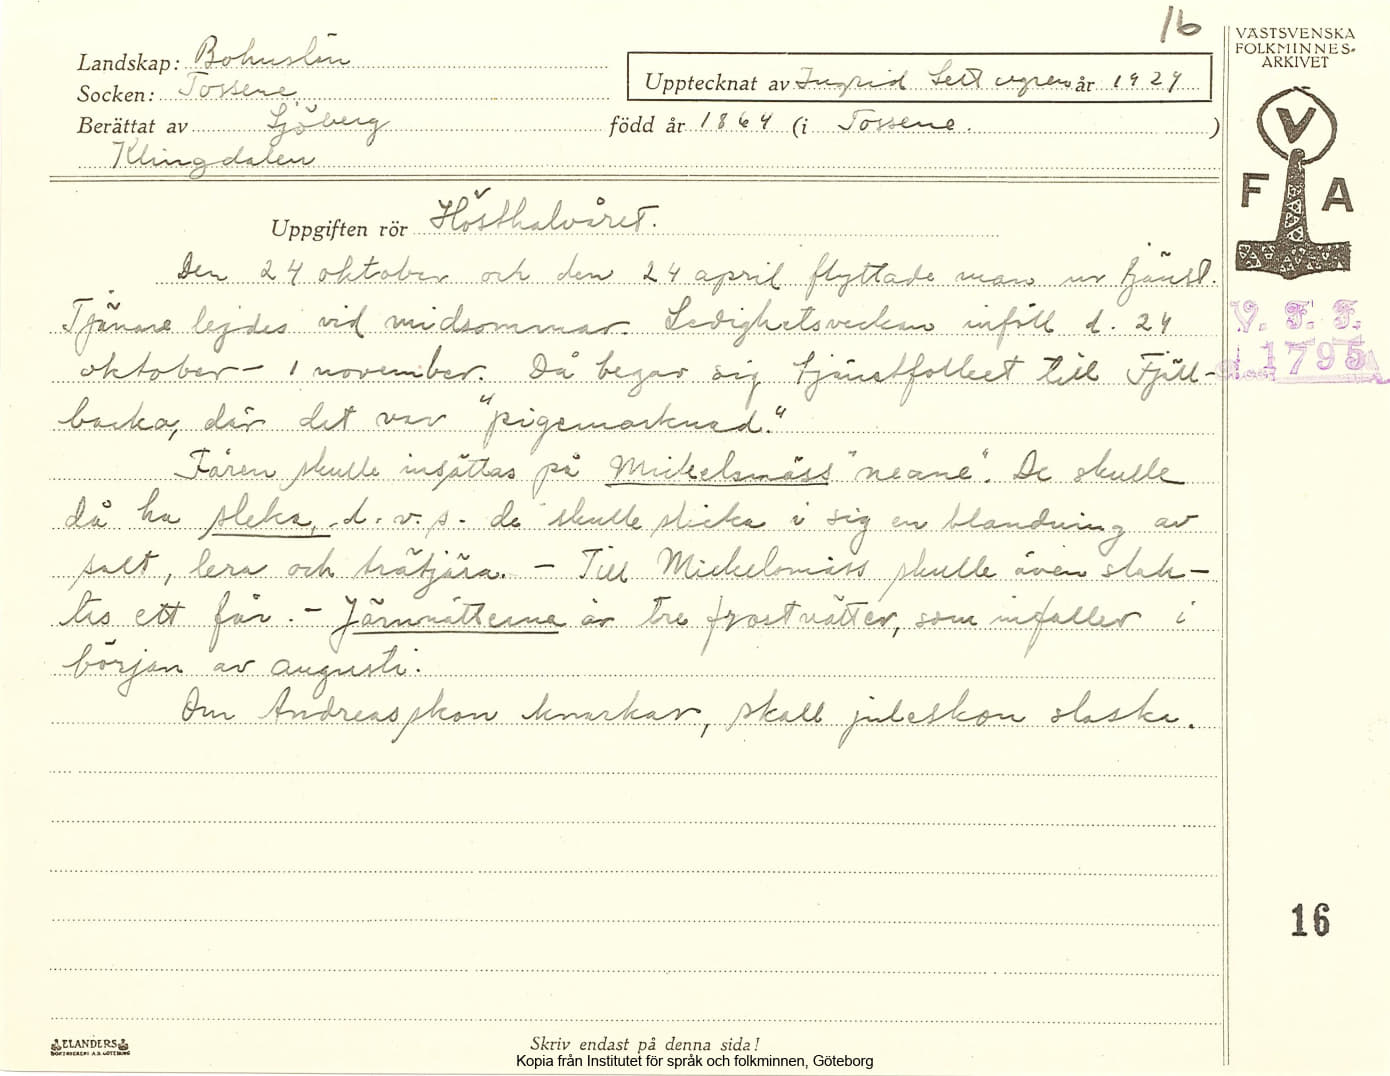 16
VÄSTSVENSKA
FOLKMINNES-
ARKIVET
Landskap: Bohuslän
Socken: Tossene
Upptecknat av Ingrid år 1929
Berättat av Sjöberg född år 1864 (i Tossene.)
Klingdalen
V
F A
Uppgiften rör Hösthalvåret.
Den 24 oktober och den 24 april flyttade man ur tjänst.
Tjänare lejdes vid midsommar. Ledighetsveckan inföll d. 24
oktober – 1 november. Då begav sig tjänstfolket till Fjäll-
backa, där det var "pigemarknad."
Fåren skulle insättas på Mickelsmäss "neane". De skulle
då ha sleka, d.v.s. de skulle slicka i sig en blandning av
salt, lera och trätjära. – Till Mickelsmäss skulle även slak-
tas ett får. – Järnnätterna är tre frostnätter, som infaller i
början av augusti.
Om Andreasskon knarkar, skall juleskon slaska.
V. F. F.
1795
16
ELANDERS
BOKTRYCKERI A.B. GÖTEBORG
Skriv endast på denna sida!
Kopia från Institutet för språk och folkminnen, Göteborg